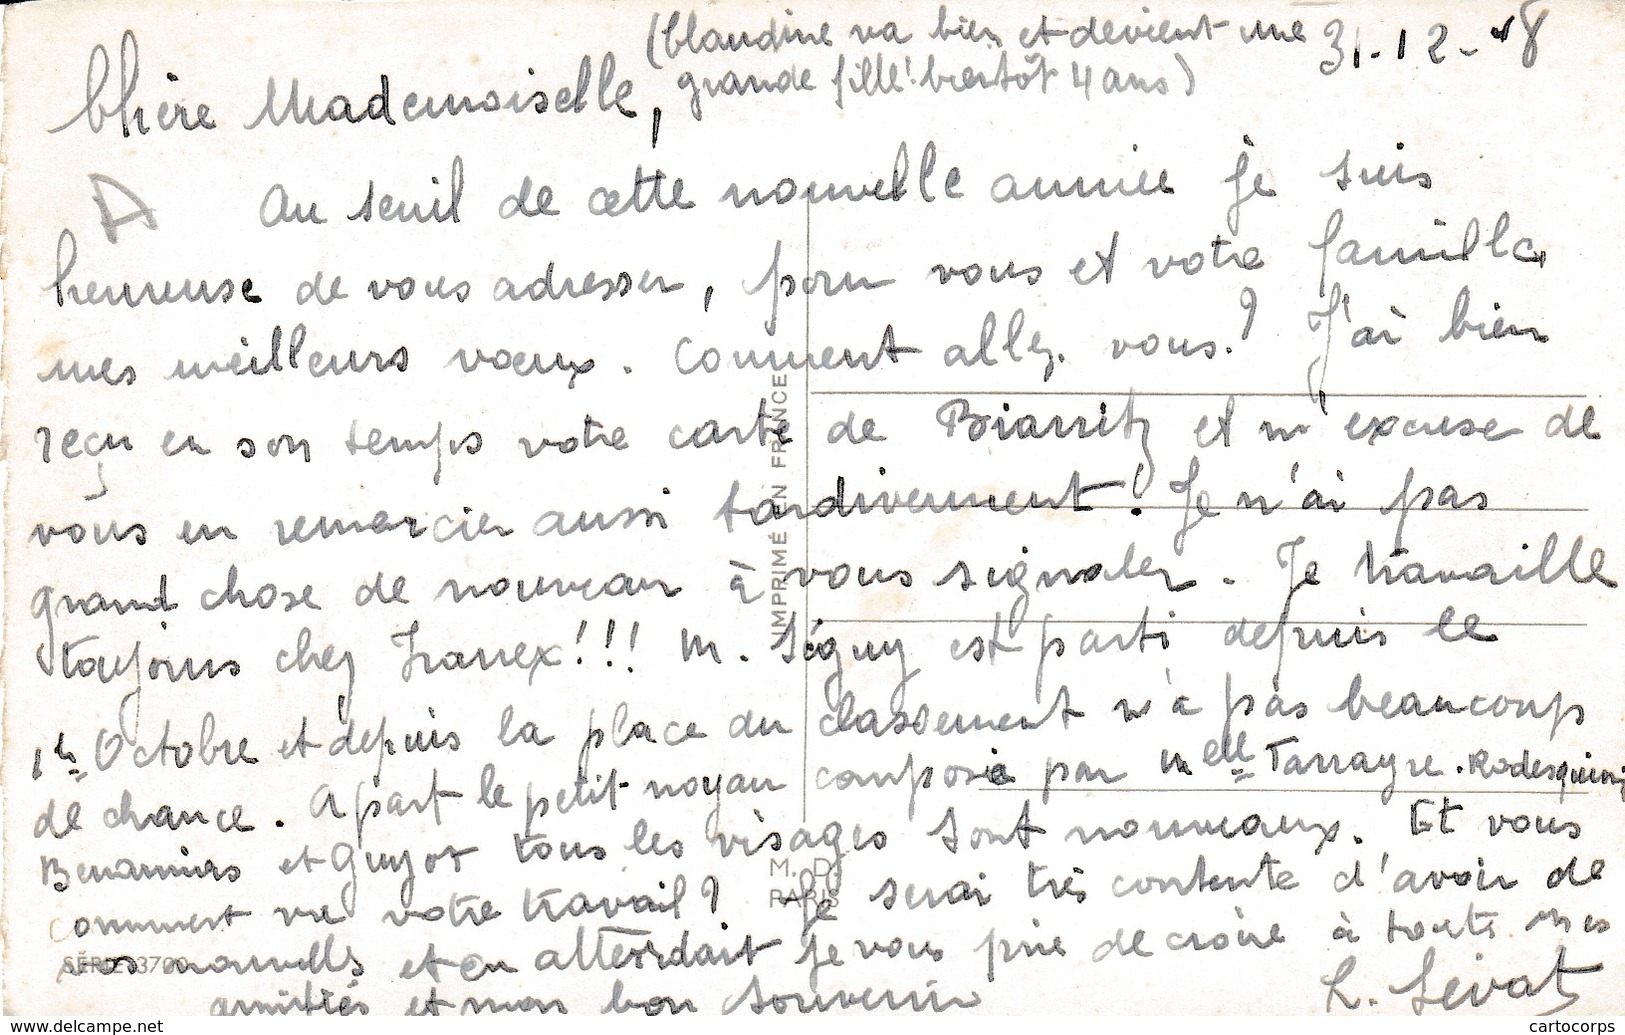 (Claudine va bien et devient une
grande fille! bientôt 4 ans)
31-12-48
Chère Mademoiselle,
Au seuil de cette nouvelle année je suis
heureuse de vous adresser, pour vous et votre famille,
mes meilleurs voeux. Comment allez-vous? J'ai bien
reçu en son temps votre carte de Biarritz et m'excuse de
vous en remercier aussi tardivement! Je n'ai pas
grand chose de nouveau à vous signaler. Je travaille
toujours chez Francex!!! M. Séguy est parti depuis le
1er Octobre et depuis la place du classement n'a pas beaucoup
de chance. A part le petit noyau composé par Melle Tarrayre.
et Guyot tous les visages sont nouveaux. Et vous
comment va votre travail? Je serai très contente d'avoir de
vos nouvelles et en attendant je vous prie de croire à toutes mes
amitiés et mon bon souvenir
IMPRIMÉ EN FRANCE
M. D.
PARIS
SÉRIE 3700
cartocorps